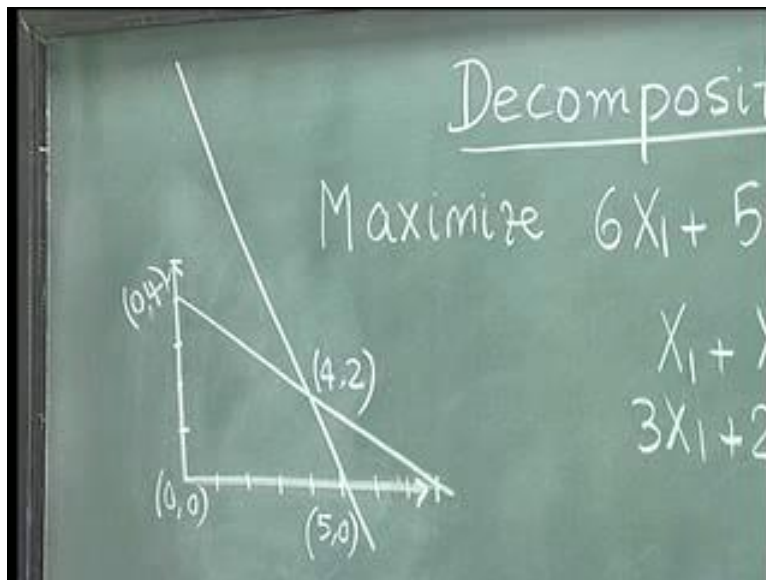 Decomposit
Maximize 6X₁ + 5
X₁ + X
3X₁ + 2
(0,4)
(4,2)
(0,0)
(5,0)